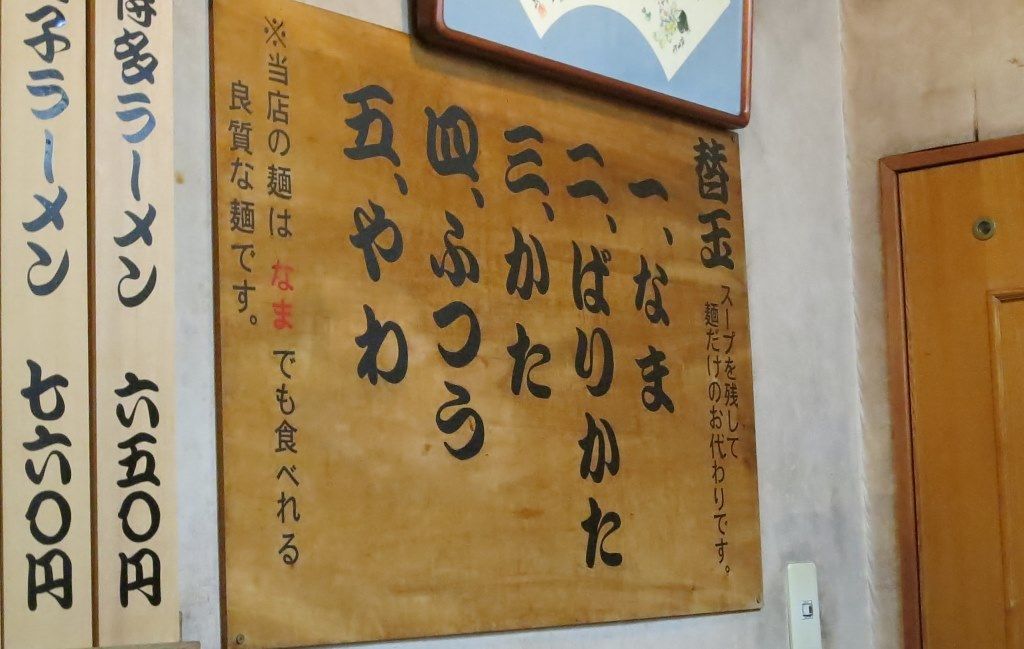 替玉
スープを残して
麺だけのお代わりです。
一、なま
二、ぱりかた
三、かた
四、ふつう
五、やわ
※当店の麺は なま でも食べれる
良質な麺です。
博多ラーメン 六五〇円
子ラーメン 七六〇円